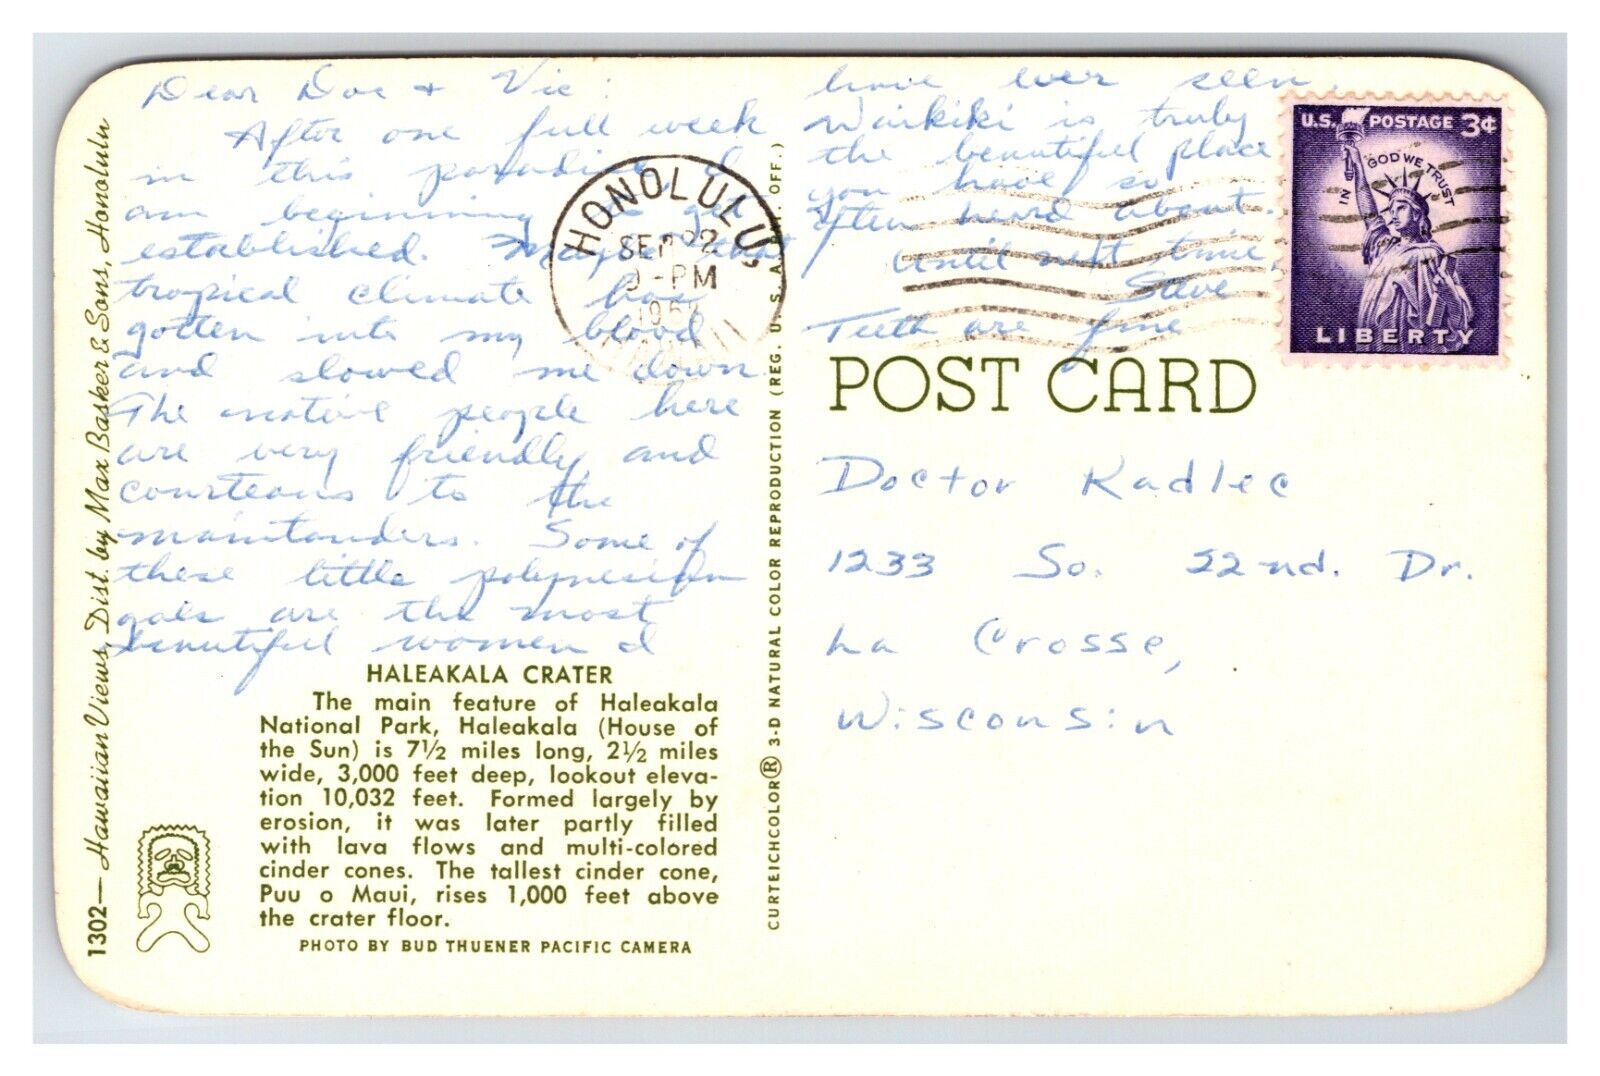 Dear Doc & Vic:
After one full week
in this paradise, I
am beginning to get
established. Maybe that
tropical climate has
gotten into my blood
and slowed me down.
The native people here
are very friendly and
courteous to the
mainlanders. Some of
these little polynesian
gals are the most
beautiful women I
have ever seen.
Waikiki is truly
the beautiful place
you have so
often heard about.
Until next time,
Steve
Teeth are fine
HONOLULU
SEP 22
9-PM
195
HAWAII
U.S. POSTAGE 3¢
IN GOD WE TRUST
LIBERTY
POST CARD
Doctor Kadlec
1233 So. 22nd. Dr.
La Crosse,
Wisconsin
HALEAKALA CRATER
The main feature of Haleakala
National Park, Haleakala (House of
the Sun) is 7½ miles long, 2½ miles
wide, 3,000 feet deep, lookout eleva-
tion 10,032 feet. Formed largely by
erosion, it was later partly filled
with lava flows and multi-colored
cinder cones. The tallest cinder cone,
Puu o Maui, rises 1,000 feet above
the crater floor.
PHOTO BY BUD THUENER PACIFIC CAMERA
1302—Hawaiian Views, Dist. by Max Basker & Sons, Honolulu
CURTEICHCOLOR® 3-D NATURAL COLOR REPRODUCTION (REG. U. S. A. PAT. OFF.)